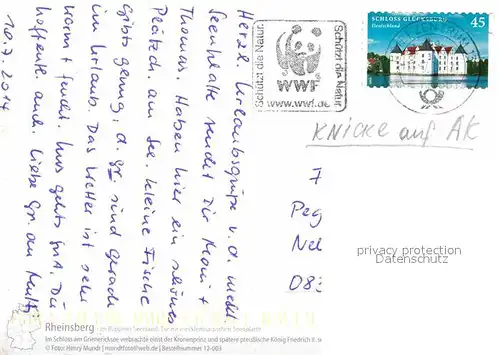 10.7.2014
Herzl. Urlaubsgrüße v. d. meckl.
Seenplatte sendet Dir Moni +
Thomas. Haben hier ein schönes
Plätzch. am See. Kleine Fische
gibts genug, d. gr. sind gerade
im Urlaub. Das Wetter ist sehr
warm + feucht. Uns gehts gut. Dir
hoffentl. auch. Liebe Gr. an Mutti
Schützt die Natur.
WWF
www.wwf.de
Schützt die Natur.
SCHLOSS GLÜCKSBURG
Deutschland
45
KNICKE auf AK
Peg
Nel
083
privacy protection
Datenschutz
Rheinsberg
Im Schloss am Grienericksee verbrachte einst der Kronenprinz und spätere preußische König Friedrich II.
© Foto: Henry Mundt | mundtfoto@web.de | Bestellnummer 12-003